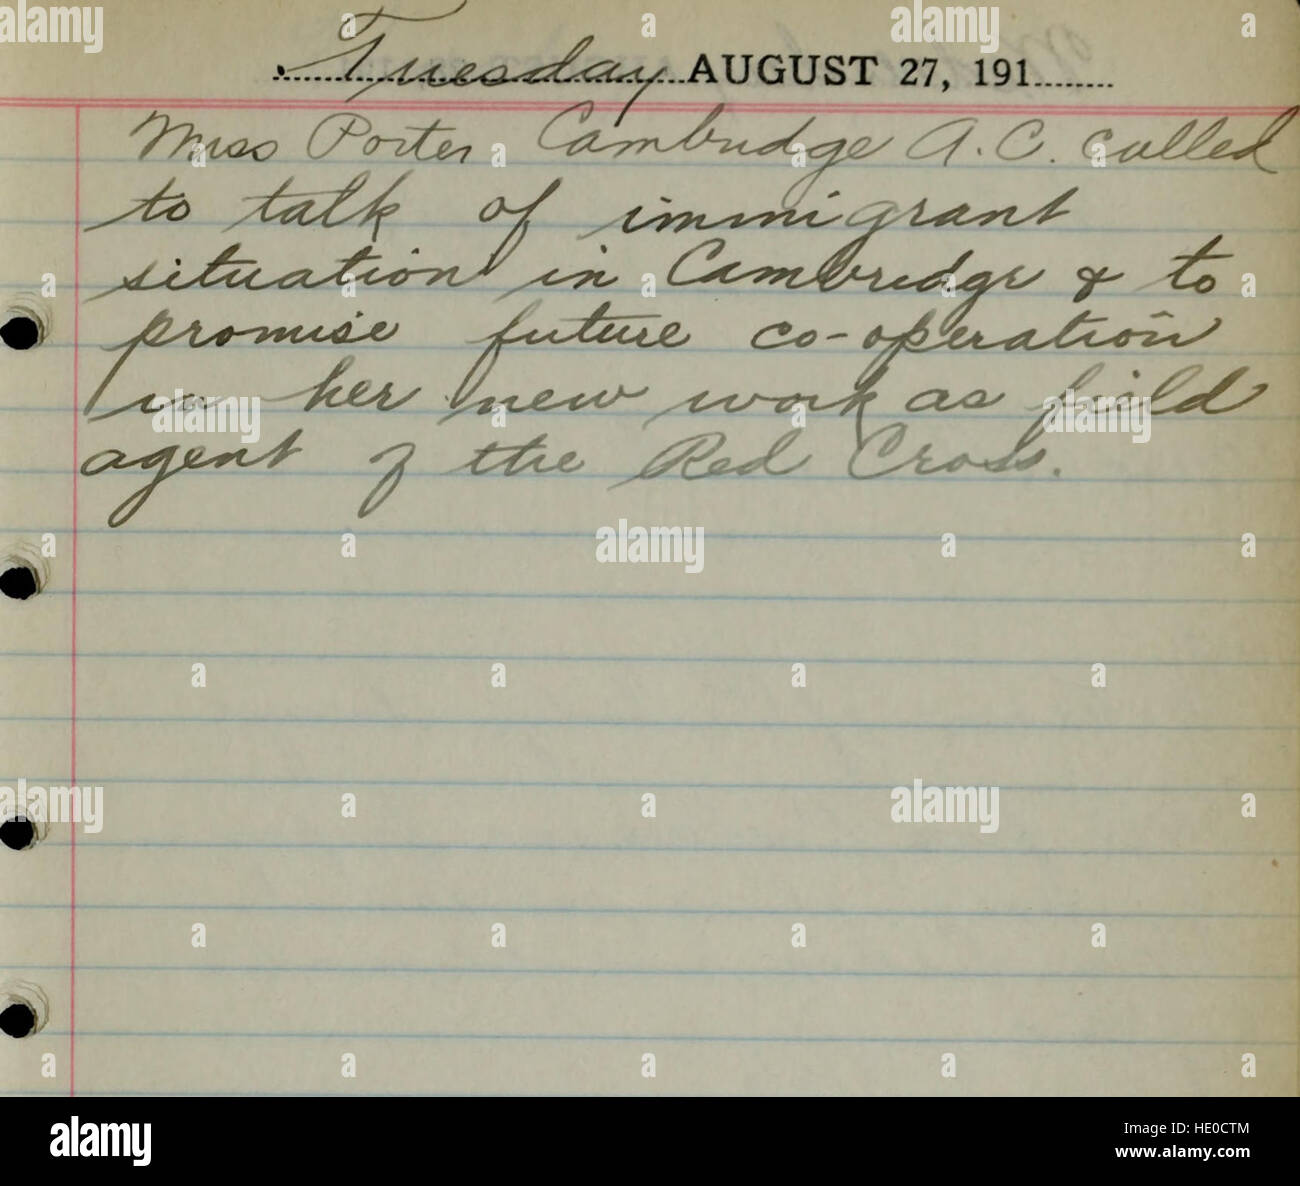 Tuesday AUGUST 27, 191
Miss Porter Cambridge A.C. called
to talk of immigrant
situation in Cambridge & to
promise future co-operation
in her new work as field
agent of the Red Cross.
alamy
alamy
Image ID: HE0CTM
www.alamy.com